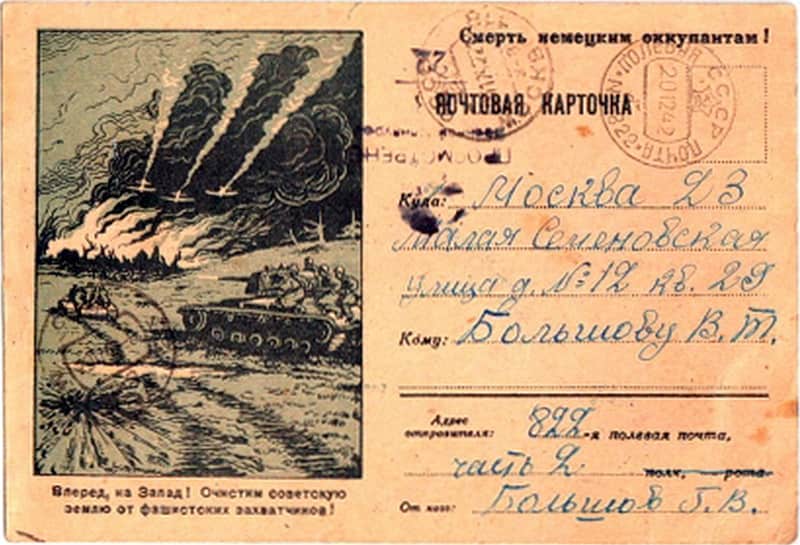 Смерть немецким оккупантам!
ПОЧТОВАЯ КАРТОЧКА
ПРОСМОТРЕНО
22
СССР
ПОЛЕВАЯ ПОЧТА
Куда: Москва 23
Малая Семеновская
улица д. № 12 кв. 29
Кому: Большову В. Т.
Адрес отправителя: 822-я полевая почта,
часть 2 полк, рота
От кого: Большов Г. В.
Вперед, на Запад! Очистим советскую
землю от фашистских захватчиков!